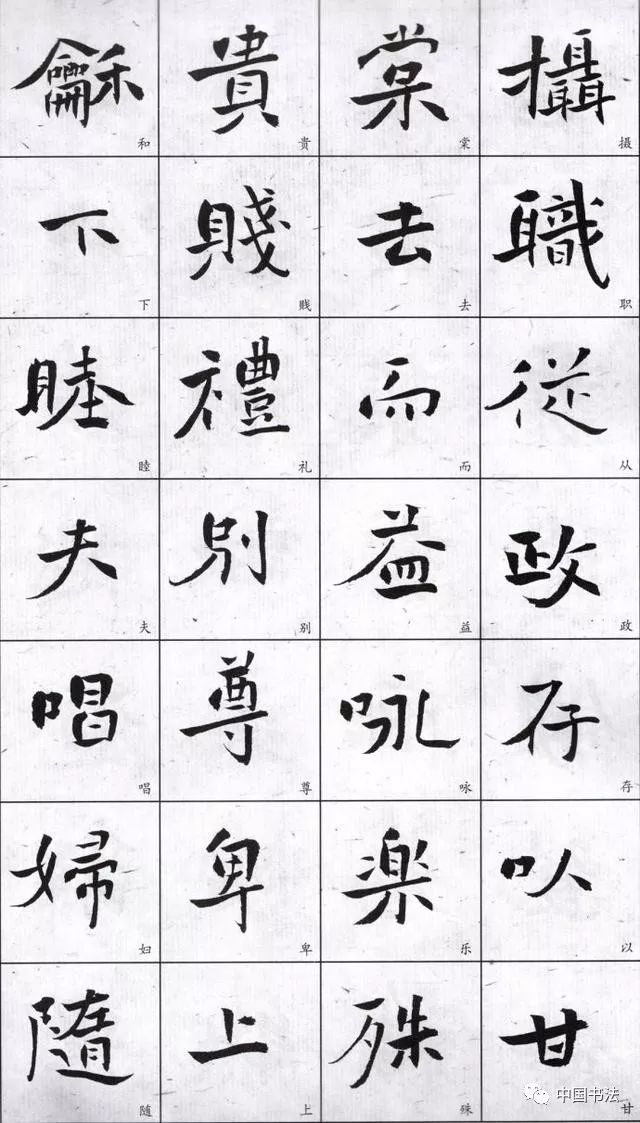 攝職従政存㕥甘
摄职从政存以甘
棠去而益咏楽殊
棠去而益咏乐殊
貴賤禮別尊卑上
貴賤礼别尊卑上
龢下睦夫唱婦隨
和下睦夫唱妇随
中国书法